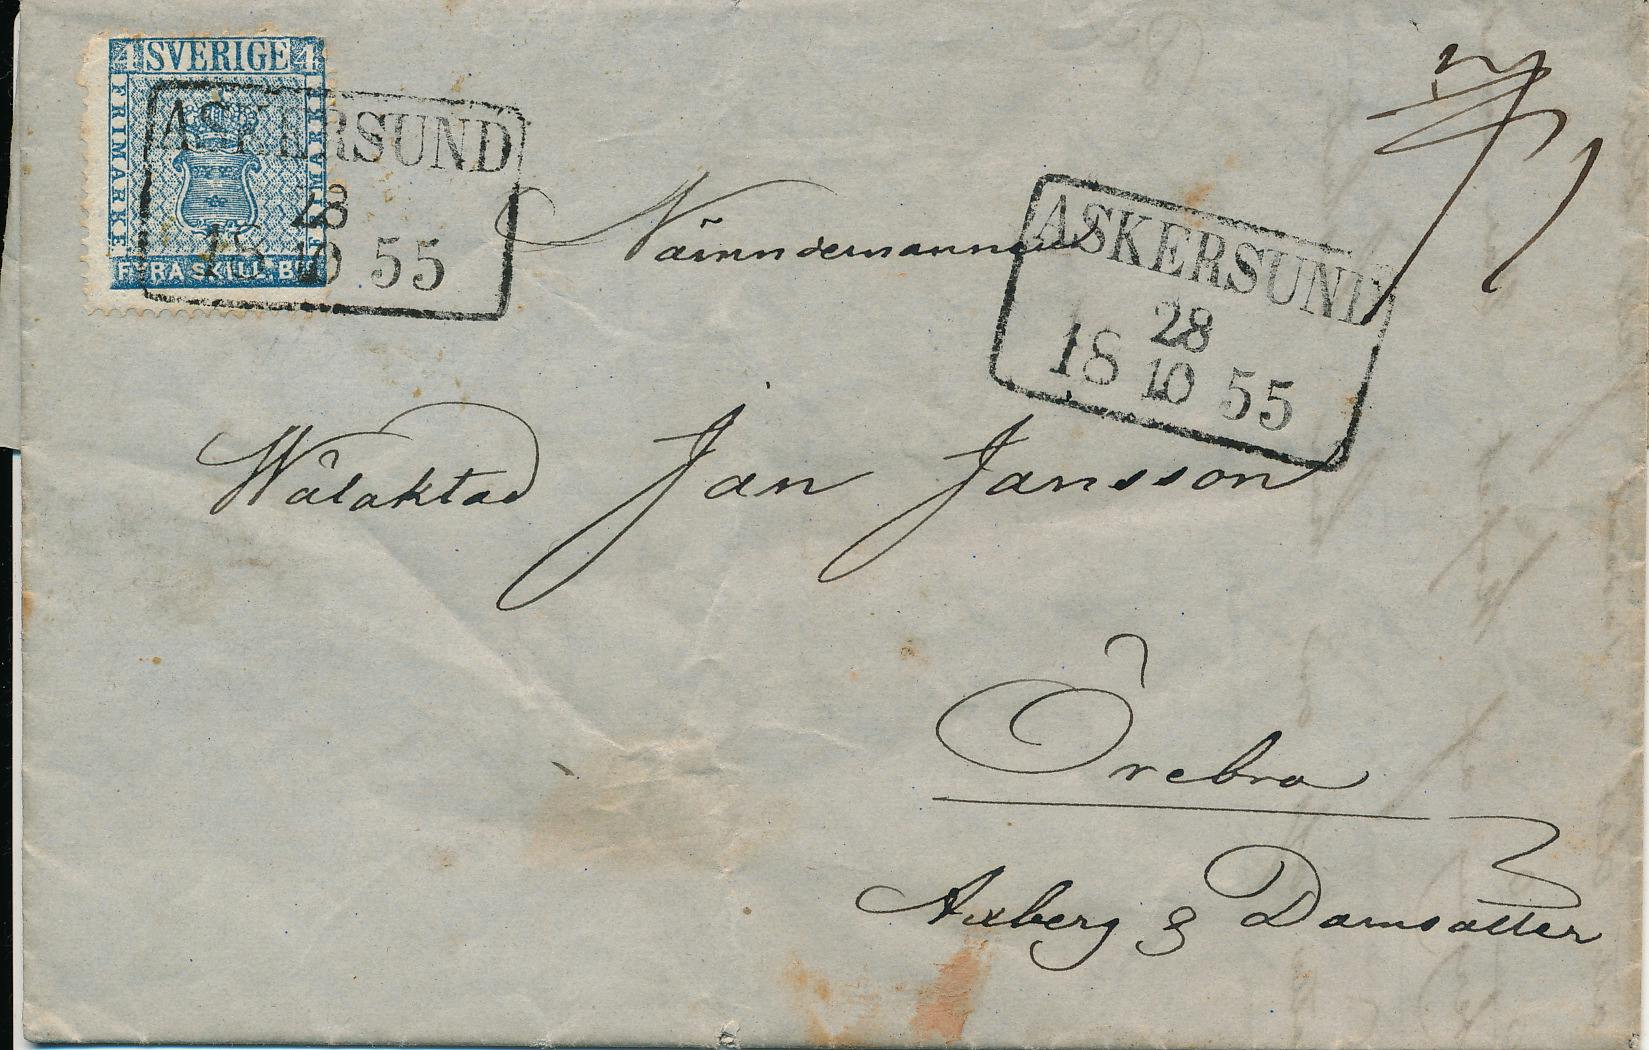 4 SVERIGE 4
FRIMARKE
FRIMARKE
FYRA SKILL. B
ASKERSUND
28
18 10 55
ASKERSUND
28
18 10 55
Nämndemannen
Wälaktad Jan Jansson
Örebro
Axberg & Damsätter